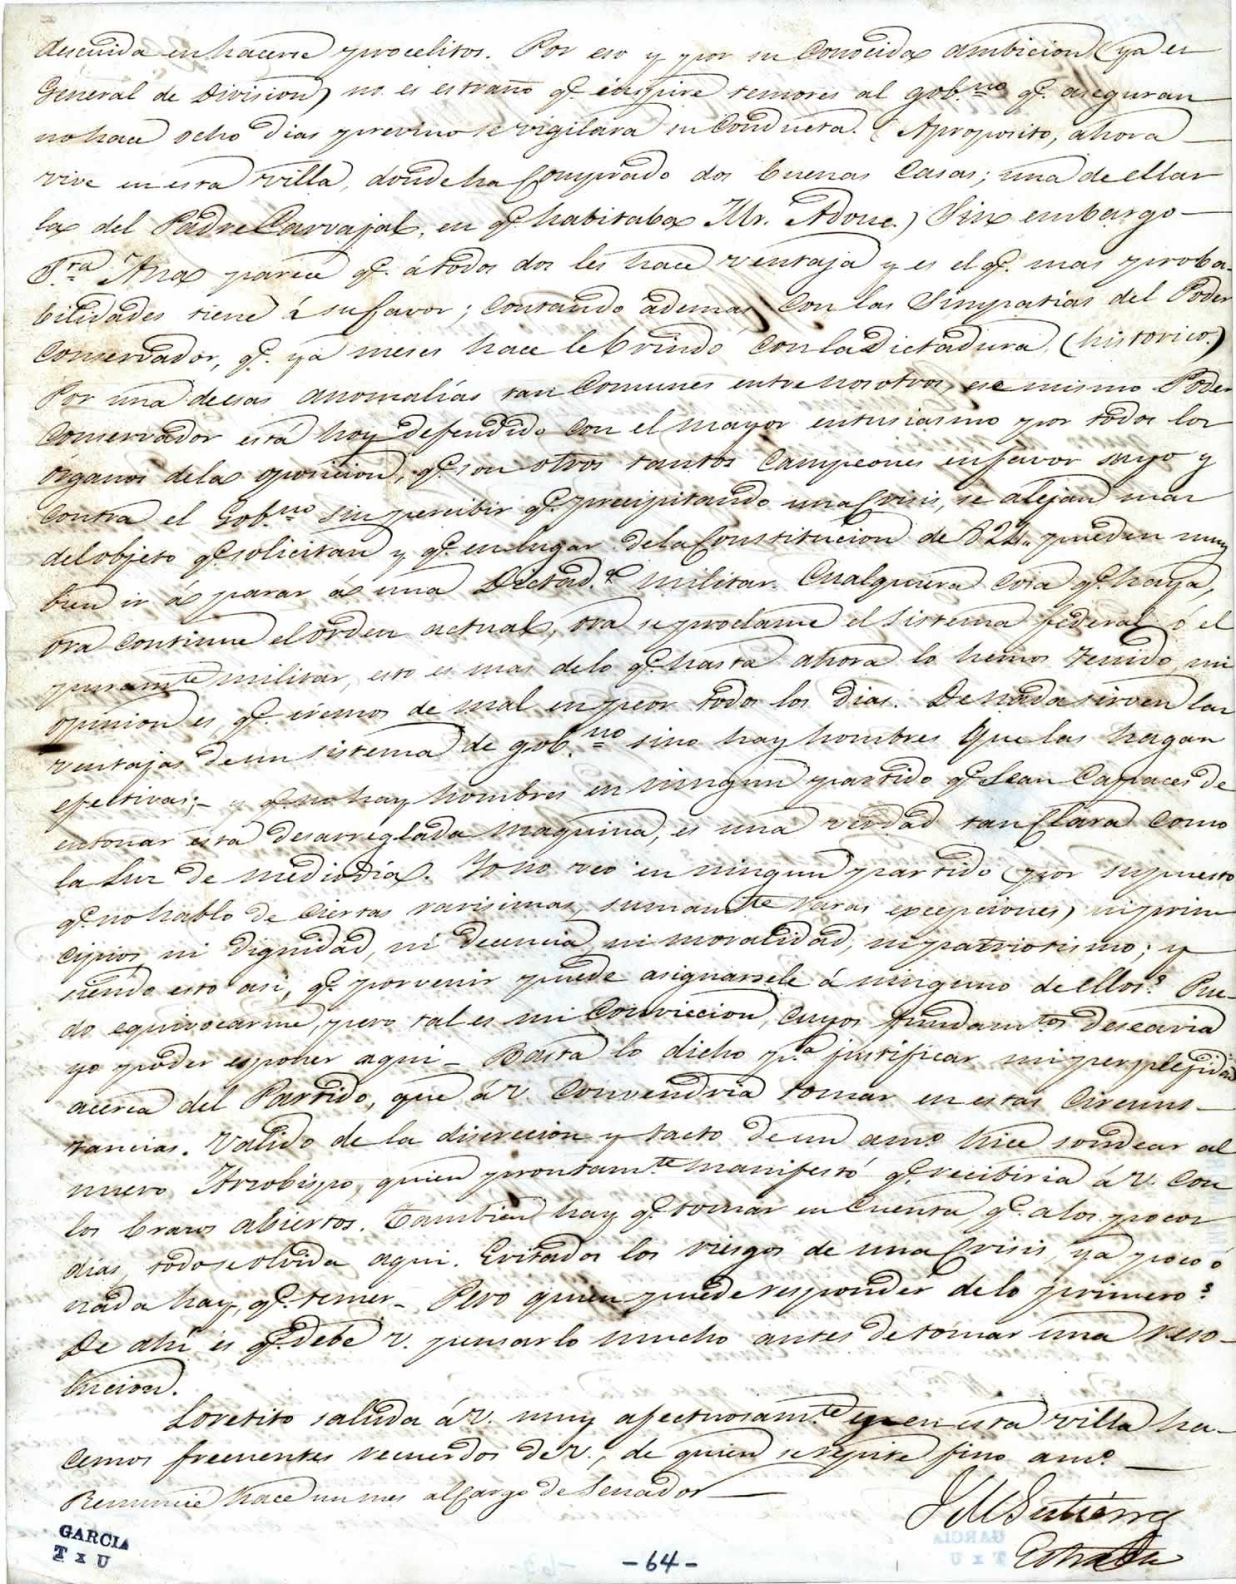 descuida en hacerse procelitos. Por eso y por su conocida ambicion (ya es
General de Division) no es estraño q.e inspire temores al gob.no q.e aseguran
no hace ocho dias previno se vigilara su conducta. (Aproposito, ahora
vive en esta villa, donde ha comprado dos buenas casas; una de ellas
la del Padre Carvajal, en q.e habitaba Mr. Adone.) Sin embargo
S.ta Ana parece q.e á todos dos les hace ventaja y es el q.e mas proba-
bilidades tiene á su favor; contando ademas con las simpatías del Poder
Conservador, q.e ya meses hace le brindó con la Dictadura (historico.)
Por una de esas anomalías tan comunes entre nosotros, ese mismo Poder
Conservador está hoy defendido con el mayor entusiasmo por todos los
organos de la oposicion, q.e son otros tantos campeones en favor suyo y
contra el Gob.no sin percibir q.e precipitando una Crisis, se alejan mas
del objeto q.e solicitan y q.e en lugar de la Constitucion de 824. pueden muy
bien ir á parar á una Dictad.a militar. Cualquiera cosa q.e haya,
ora continue el orden actual, ora se proclame el sistema federal ó el
puram.te militar, esto es mas de lo q.e hasta ahora lo hemos tenido, mi
opinion es q.e iremos de mal en peor todos los dias. De nada sirven las
ventajas de un sistema de gob.no sino hay hombres que las hagan
efectivas; y q.e no hay hombres en ningun partido q.e sean capaces de
entonar esta desarreglada maquina, es una verdad tan clara como
la luz de mediodía. Yo no veo en ningun partido (por supuesto
q.e no hablo de ciertas rarisimas, sumam.te raras excepciones) ni prin
cipios, ni dignidad, ni decencia, ni moralidad, ni patriotismo; y
siendo esto asi, q.e porvenir puede asignarsele á ninguno de ellos? Pue-
do equivocarme, pero tal es mi conviccion, cuyos fundam.tos desearia
yo poder esponer aqui_ Basta lo dicho p.a justificar mi perplejidad
acerca del Partido, que á V. convendria tomar en estas circuns-
tancias. Valido de la discrecion y tacto de un am.o hice sondear al
nuevo Arzobispo, quien prontam.te manifestó q.e recibiria á V. con
los brazos abiertos. Tambien hay q.e tomar en cuenta q.e a los pocos
dias, todo se olvida aqui. Evitados los riesgos de una Crisis, ya poco ó
nada hay q.e temer_ Pero quien puede responder de lo primero?
De ahí es q.e debe V. pensarlo mucho antes de tomar una reso-
lucion.
Loretito saluda á V. muy afectuosam.te y en esta villa ha-
cemos frecuentes recuerdos de V., de quien se repite fino am.o
Renuncié hace un mes al cargo de Senador
J M Gutiérrez
Estrada
GARCIA
T x U
-64-